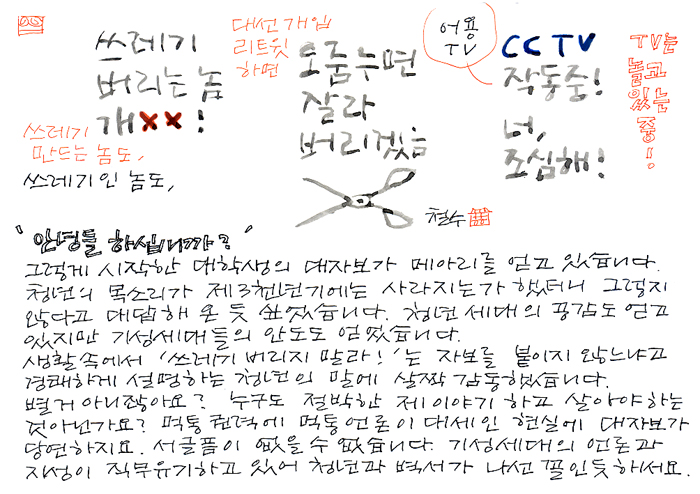 쓰레기
버리는 놈
개××!
쓰레기
만드는 놈도,
쓰레기인 놈도,
대선 개입
리트윗
하면
오줌누면
잘라
버리겠음
철수
어용
TV
CCTV
작동중!
너,
조심해!
TV는
놀고
있는
중!
'안녕들 하십니까?'
그렇게 시작한 대학생의 대자보가 메아리를 얻고 있습니다.
청년의 목소리가 제3천년기에는 사라지는가 했더니 그렇지
않다고 대답해 온 듯 싶었습니다. 청년 세대의 공감도 얻고
있지만 기성세대들의 안도도 얻었습니다.
생활속에서 '쓰레기 버리지 말라!'는 자보를 붙이지 않느냐고
경쾌하게 설명하는 청년의 말에 살짝 감동했습니다.
별거 아니잖아요? 누구도 절박한 제 이야기 하고 살아야하는
것아닌가요? 먹통 권력에 먹통 언론이 대세인 현실에 대자보가
당연하지요. 서글픔이 없을 수 없습니다. 기성세대의 언론과
지성이 직무유기하고 있어 청년과 벽서가 나선 꼴인듯 하서요.